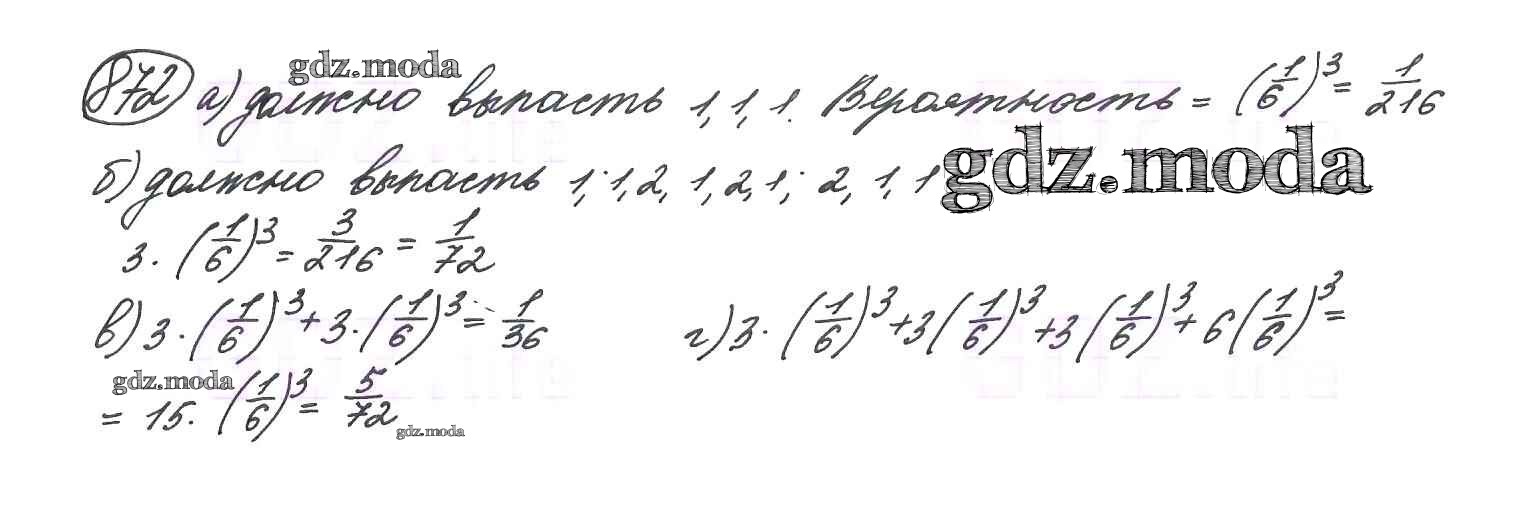 872 а) должно выпасть 1, 1, 1. Вероятность = (1/6)^3 = 1/216
gdz.moda
б) должно выпасть 1, 1, 2, 1, 2, 1; 2, 1, 1
gdz.moda
3 · (1/6)^3 = 3/216 = 1/72
в) 3 · (1/6)^3 + 3 · (1/6)^3 = 1/36
г) 3 · (1/6)^3 + 3 (1/6)^3 + 3 (1/6)^3 + 6 (1/6)^3 =
gdz.moda
= 15 · (1/6)^3 = 5/72
gdz.moda